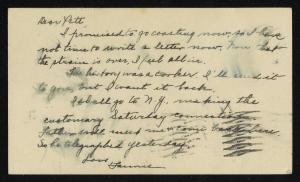 Dear Pett
I promised to go coasting now, so I have
not time to write a letter now. Now that
the strain is over, I feel all in.
The history was a corker. I'll send it
to you, but I want it back.
I shall go to N.Y. making the
customary Saturday connections
Father will meet me
So he telegraphed yesterday.
Love